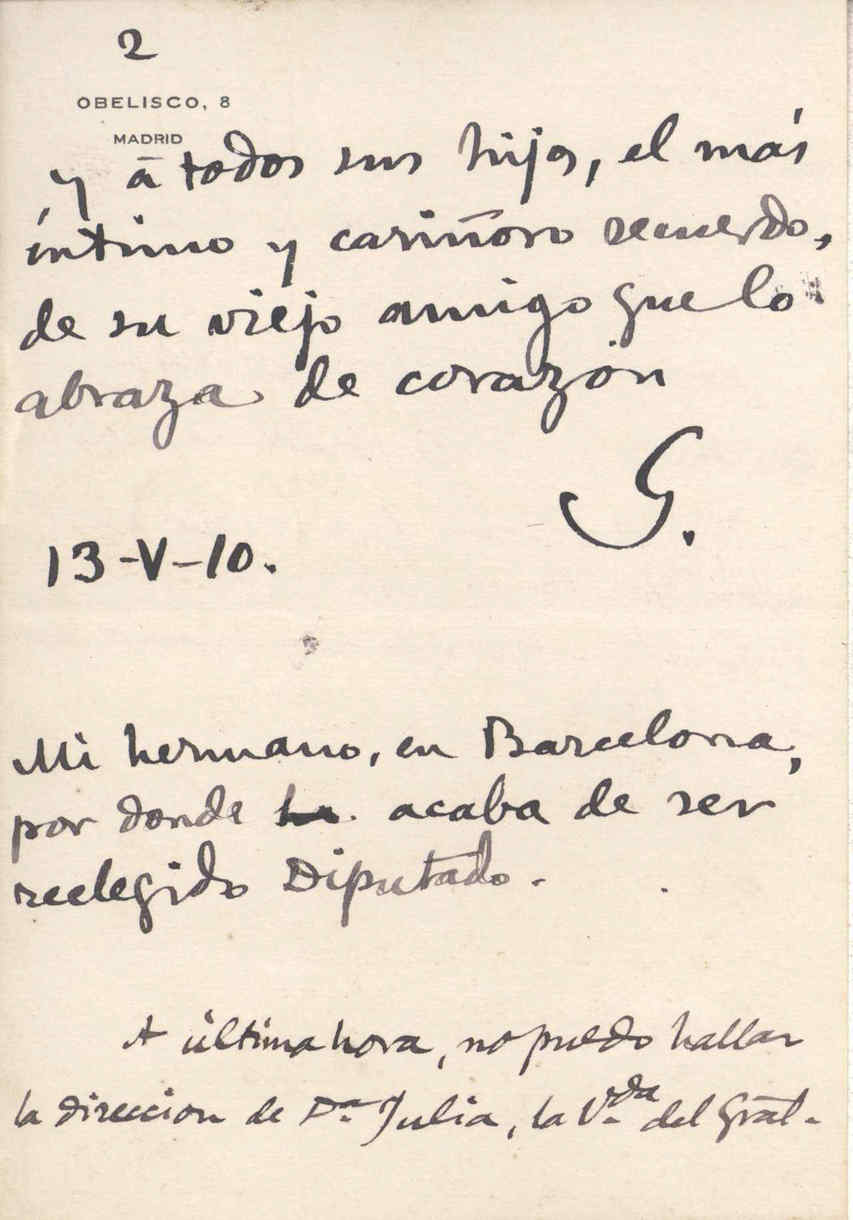 2
OBELISCO, 8
MADRID
y á todos sus hijos, el más
íntimo y cariñoso recuerdo,
de su viejo amigo que lo
abraza de corazón
G.
13-V-10.
Mi hermano, en Barcelona,
por donde acaba de ser
reelegido Diputado.
A última hora, no puedo hallar
la direccion de Dª Julia, la V.da del Gral.